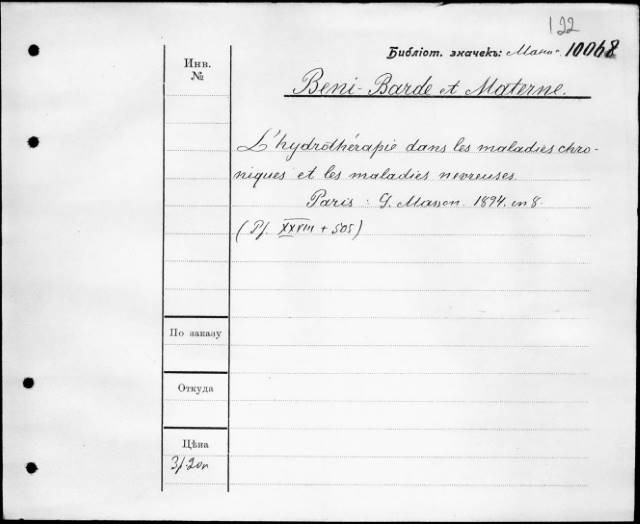 122
Библіот. значекъ: 10068
Инв.
№
Beni-Barde et Materne.
L'hydrothérapie dans les maladies chro-
niques et les maladies nevreuses.
Paris: G. Masson. 1894. in 8.
(Pf. XXVIII + 505)
По заказу
Откуда
Цѣна